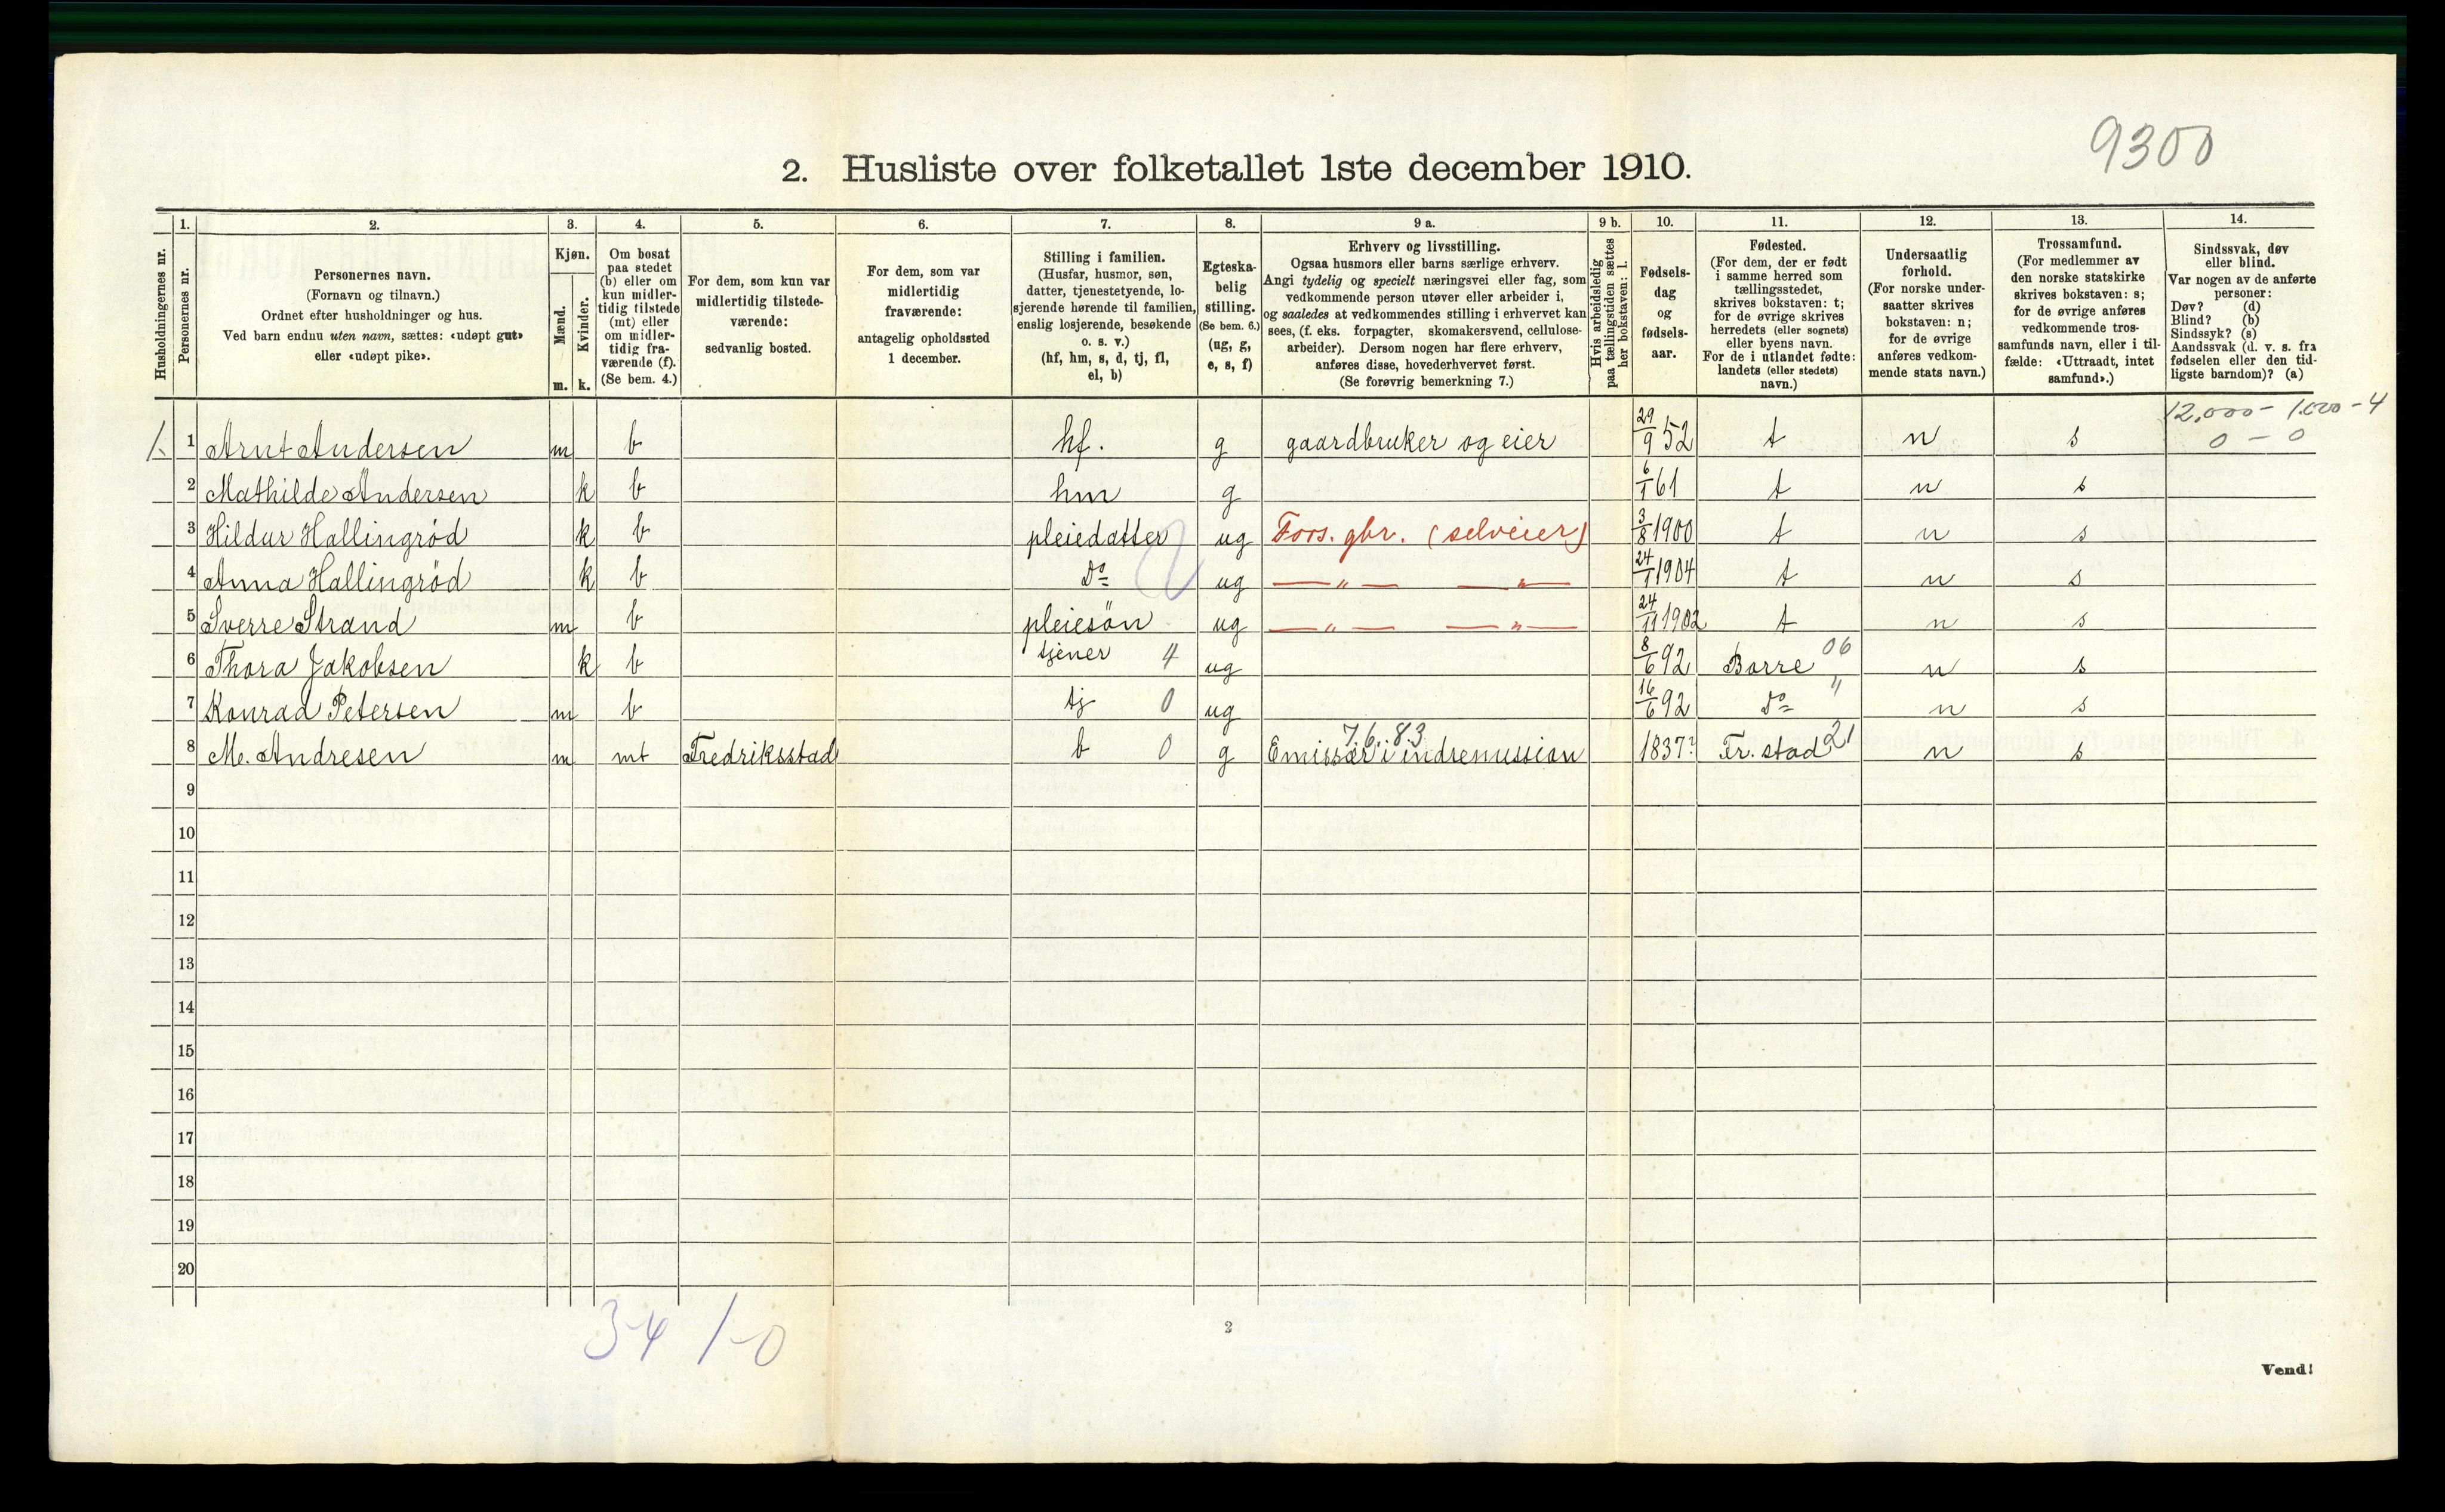 9300
2. Husliste over folketallet 1ste december 1910.
Husholdningernes nr.
1.
Personernes nr.
2.
Personernes navn.
(Fornavn og tilnavn.)
Ordnet efter husholdninger og hus.
Ved barn endnu uten navn, sættes: «udøpt gut»
eller «udøpt pike».
3.
Kjøn.
Mænd.
Kvinder.
m. k.
4.
Om bosat
paa stedet
(b) eller om
kun midler-
tidig tilstede
(mt) eller
om midler-
tidig fra-
værende (f).
(Se bem. 4.)
5.
For dem, som kun var
midlertidig tilstede-
værende:
sedvanlig bosted.
6.
For dem, som var
midlertidig
fraværende:
antagelig opholdssted
1 december.
7.
Stilling i familien.
(Husfar, husmor, søn,
datter, tjenestetyende, lo-
sjerende hørende til familien,
enslig losjerende, besøkende
o. s. v.)
(hf, hm, s, d, tj, fl,
el, b)
8.
Egteska-
belig
stilling.
(Se bem. 6.)
(ug, g,
e, s, f)
9 a.
Erhverv og livsstilling.
Ogsaa husmors eller barns særlige erhverv.
Angi tydelig og specielt næringsvei eller fag, som
vedkommende person utøver eller arbeider i,
og saaledes at vedkommendes stilling i erhvervet kan
sees, (f. eks. forpagter, skomakersvend, cellulose-
arbeider). Dersom nogen har flere erhverv,
anføres disse, hovederhvervet først.
(Se forøvrig bemerkning 7.)
9 b.
Hvis arbeidsledig
paa tællingstiden sættes
her bokstaven: l.
10.
Fødsels-
dag
og
fødsels-
aar.
11.
Fødested.
(For dem, der er født
i samme herred som
tællingsstedet,
skrives bokstaven: t;
for de øvrige skrives
herredets (eller sognets)
eller byens navn.
For de i utlandet fødte:
landets (eller stedets)
navn.)
12.
Undersaatlig
forhold.
(For norske under-
saatter skrives
bokstaven: n;
for de øvrige
anføres vedkom-
mende stats navn.)
13.
Trossamfund.
(For medlemmer av
den norske statskirke
skrives bokstaven: s;
for de øvrige anføres
vedkommende tros-
samfunds navn, eller i til-
fælde: «Uttraadt, intet
samfund».)
14.
Sindssvak, døv
eller blind.
Var nogen av de anførte
personer:
Døv? (d)
Blind? (b)
Sindssyk? (s)
Aandssvak (d. v. s. fra
fødselen eller den tid-
ligste barndom)? (a)
1. 1 Arnt Andersen m b hf. g gaardbruker og eier 29/9 52 t n s 12,000 - 1.000 - 4
0 - 0
2 Mathilde Andersen k b hm g 6/1 61 t n s
3 Hildur Hallingrød k b pleiedatter ug Fors. gbr. (selveier) 3/8 1900 t n s
4 Anna Hallingrød k b Do 2 ug — " — — " — 24/1 1904 t n s
5 Sverre Strand m b pleiesön ug — " — — " — 24/11 1902 t n s
6 Thora Jakobsen k b tjener 4 ug 8/6 92 Borre 06 n s
7 Konrad Petersen m b tj 0 ug 16/6 92 Do " n s
8 M. Andresen m mt Fredriksstad b 0 g 7.6.83 Emissær i indremission 1837? Fr. stad 21 n s
9
10
11
12
13
14
15
16
17
18
19
20
3-4 1-0
2
Vend!